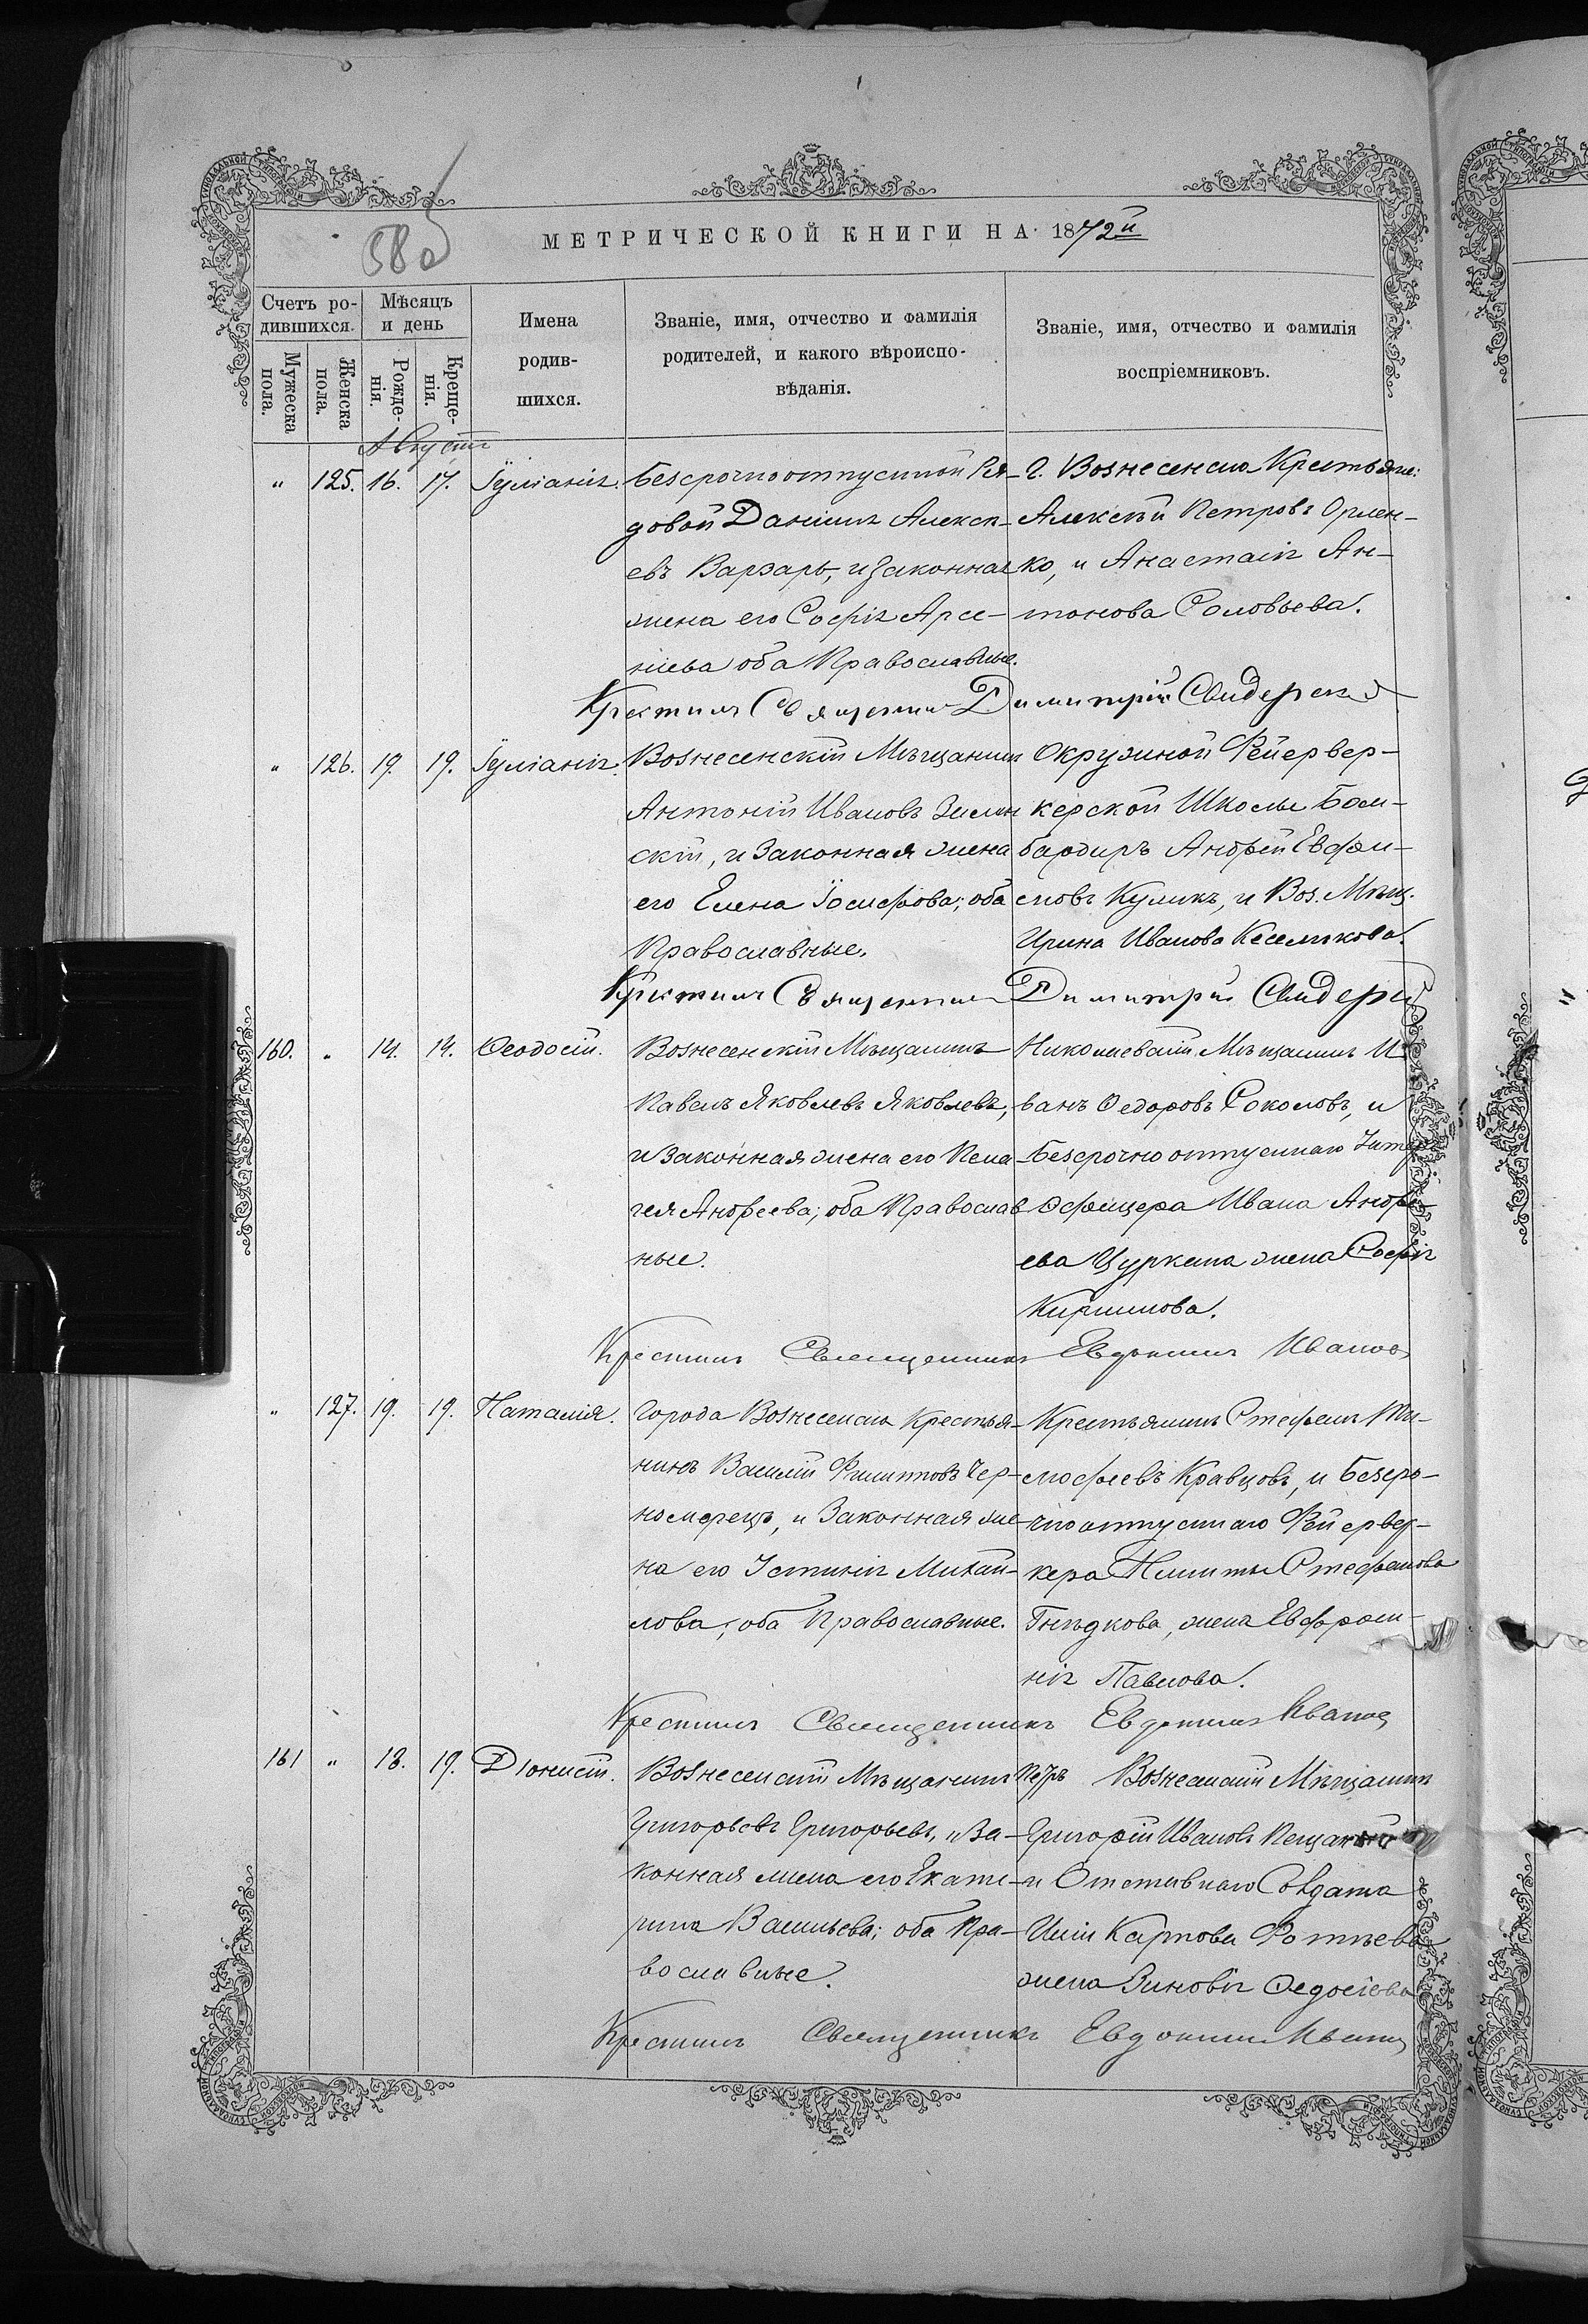 580
МЕТРИЧЕСКОЙ КНИГИ НА 1872й
Счетъ ро-
дившихся.
Мужеска пола.
Женска пола.
Мѣсяцъ
и день
Рожде-
нія.
Креще-
нія.
Имена
родив-
шихся.
Званіе, имя, отчество и фамилія
родителей, и какого вѣроиспо-
вѣданія.
Званіе, имя, отчество и фамилія
воспріемниковъ.
Августъ
" 125. 16. 17. Іуліанія.
Безсрочноотпускной Ря-
довой Даніилъ Алексѣ-
евъ Варзарь, и Законная
жена его Софія Арсе-
ніева оба Православные.
Г. Вознесенска Крестьяне:
Алексѣй Петровъ Орлен-
ко, и Анастасія Ан-
тонова Соловьева.
Крестилъ Священникъ Димитрій Свидерскій
" 126. 19. 19. Іуліанія.
Вознесенскій Мѣщанинъ
Антоній Ивановъ Зилин
скій, и Законная жена
его Елена Іосифова; оба
Православные.
Окружной Фейервер-
керской Школы Бом-
бардиръ Андрей Евфи-
мовъ Куликъ, и Воз. Мѣщ.
Ирина Иванова
Крестилъ Священникъ Димитрій Свидерскій
160. " 14. 14. Ѳеодосій.
Вознесенскій Мѣщанинъ
Павелъ Яковлевъ Яковлевъ,
и Законная жена его Пела-
гея Андреева; оба Православ
ные.
Николаевскій Мѣщанинъ И-
ванъ Ѳедоровъ Соколовъ, и
Безсрочно отпускнаго Унтеръ
Офицера Ивана Андре-
ева Цуркана жена Софія
Кирилова.
Крестилъ Священникъ Евдокимъ Ивановъ
" 127. 19. 19. Наталія.
Города Вознесенска Крестья-
нинъ Василій Филипповъ Чер-
номорецъ, и Законная же-
на его Устинія Михай-
лова; оба Православные.
Крестьянинъ Стефанъ Ти-
мофеевъ Кравцовъ, и Безсро-
чноотпускнаго Фейервер-
кера Никиты Стефанова
Гнѣдкова, жена Евфроси-
нія Павлова.
Крестилъ Священникъ Евдокимъ Ивановъ
161 " 18. 19. Діонисій.
Вознесенскій Мѣщанинъ Петръ
Григорьевъ Григорьевъ, и За-
конная жена его Екате-
рина Васильева; оба Пра-
вославные.
Вознесенскій Мѣщанинъ
Григорій Ивановъ
и Отставнаго Солдата
Иліи Карпова Фотѣева
жена Зиновія Ѳедосіева
Крестилъ Священникъ Евдокимъ Ивановъ